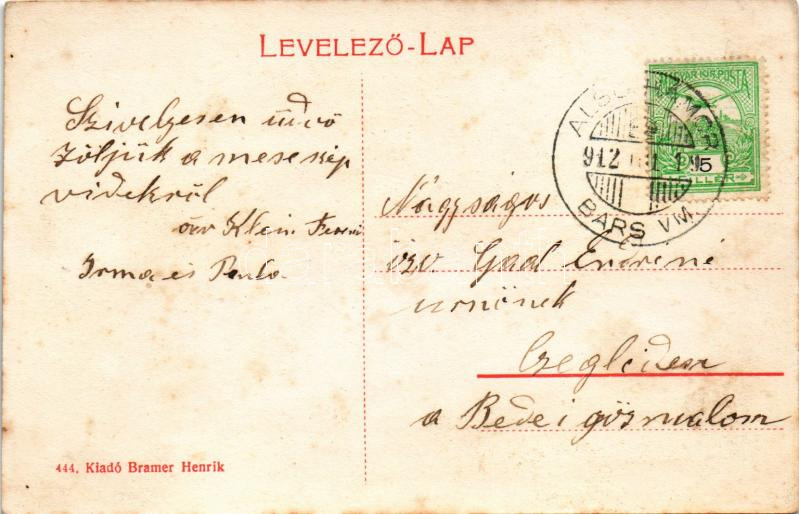 LEVELEZŐ-LAP
Szivelyesen üdvö
zöljük a meseszép
videkről
özv Klein
Irma és
MAGYAR KIR. POSTA
912
5
FILLÉR
BARS VM
Nagyságos
özv. Gaal Endréné
urnőnek
Czegléden
a Bedei gőzmalom
444. Kiadó Bramer Henrik